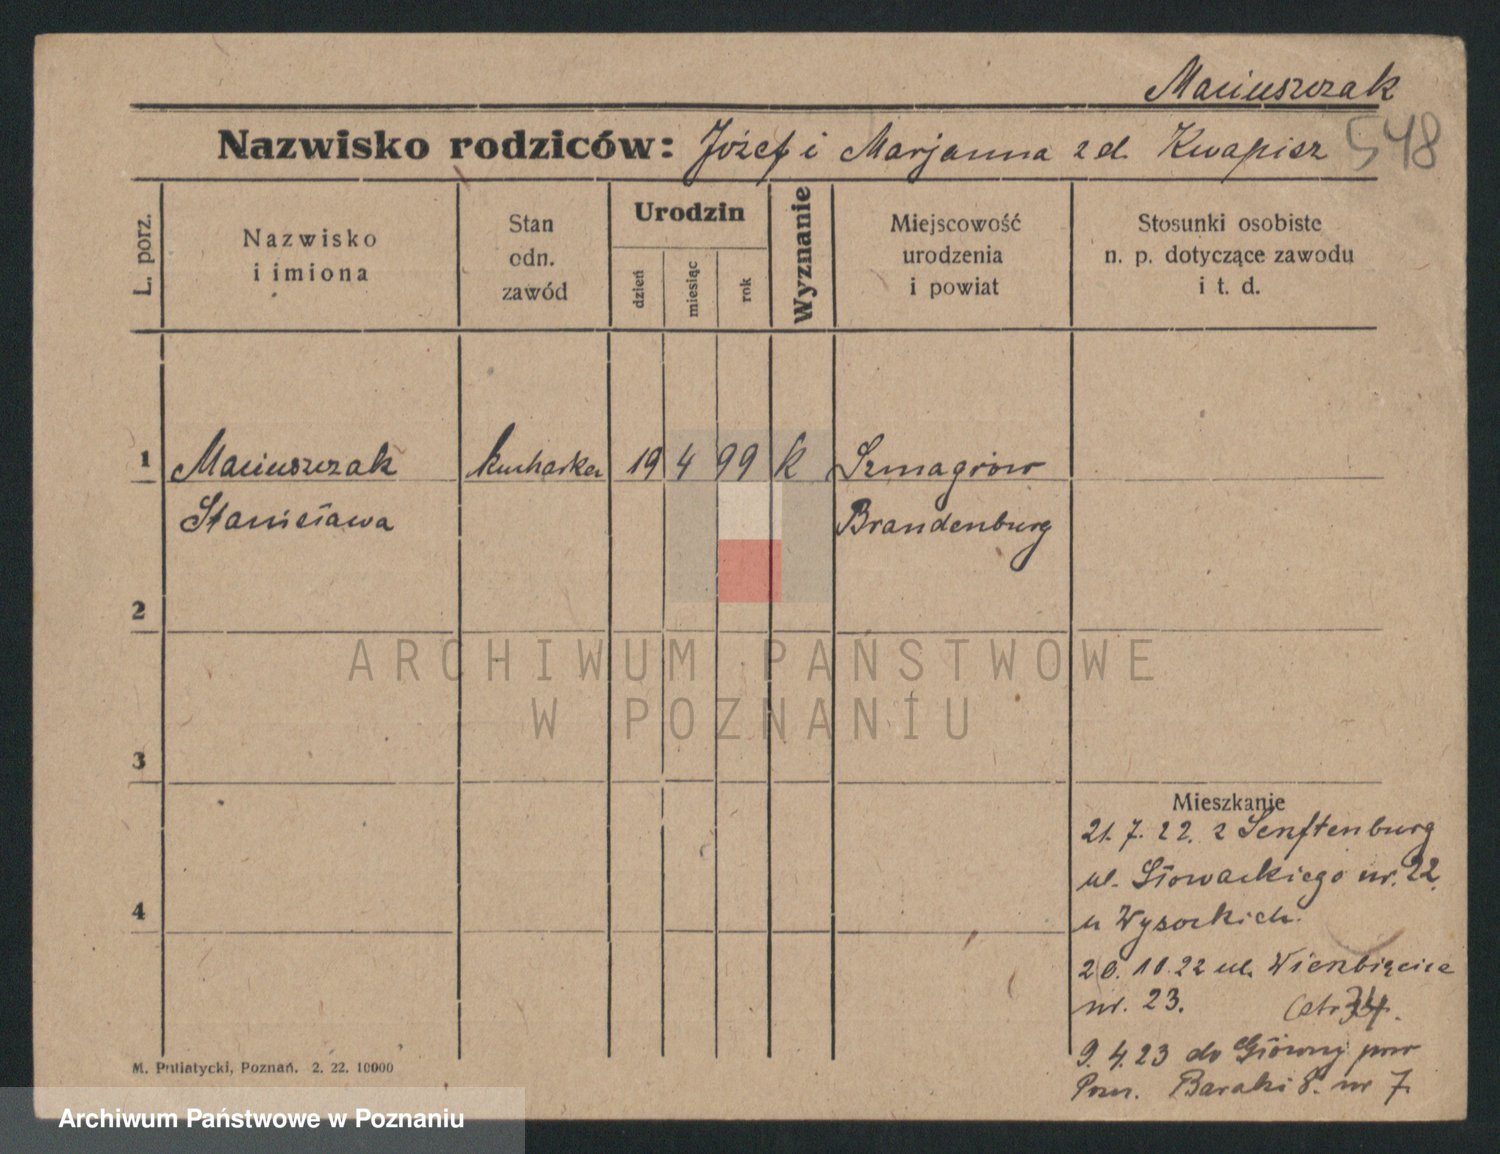 Maciuszczak
Nazwisko rodziców: Józef i Marjanna z d. Kwapisz 548
L. porz.
Nazwisko
i imiona
Stan
odn.
zawód
Urodzin
dzień
miesiąc
rok
Wyznanie
Miejscowość
urodzenia
i powiat
Stosunki osobiste
n. p. dotyczące zawodu
i t. d.
1 Maciuszczak kucharka 19 4 99 k Szmagrow
Stanisława Brandenburg
2
ARCHIWUM PAŃSTWOWE
W POZNANIU
3
Mieszkanie
21. 7. 22. z Senftenburg
ul. Słowackiego nr. 22.
u Wysockich.
4
20. 10. 22 ul. Wierzbięcice
nr. 23.
9. 4. 23 do Główny pow
Pozn. Baraki 8. nr 7.
M. Putiatycki, Poznań. 2. 22. 10000
Archiwum Państwowe w Poznaniu